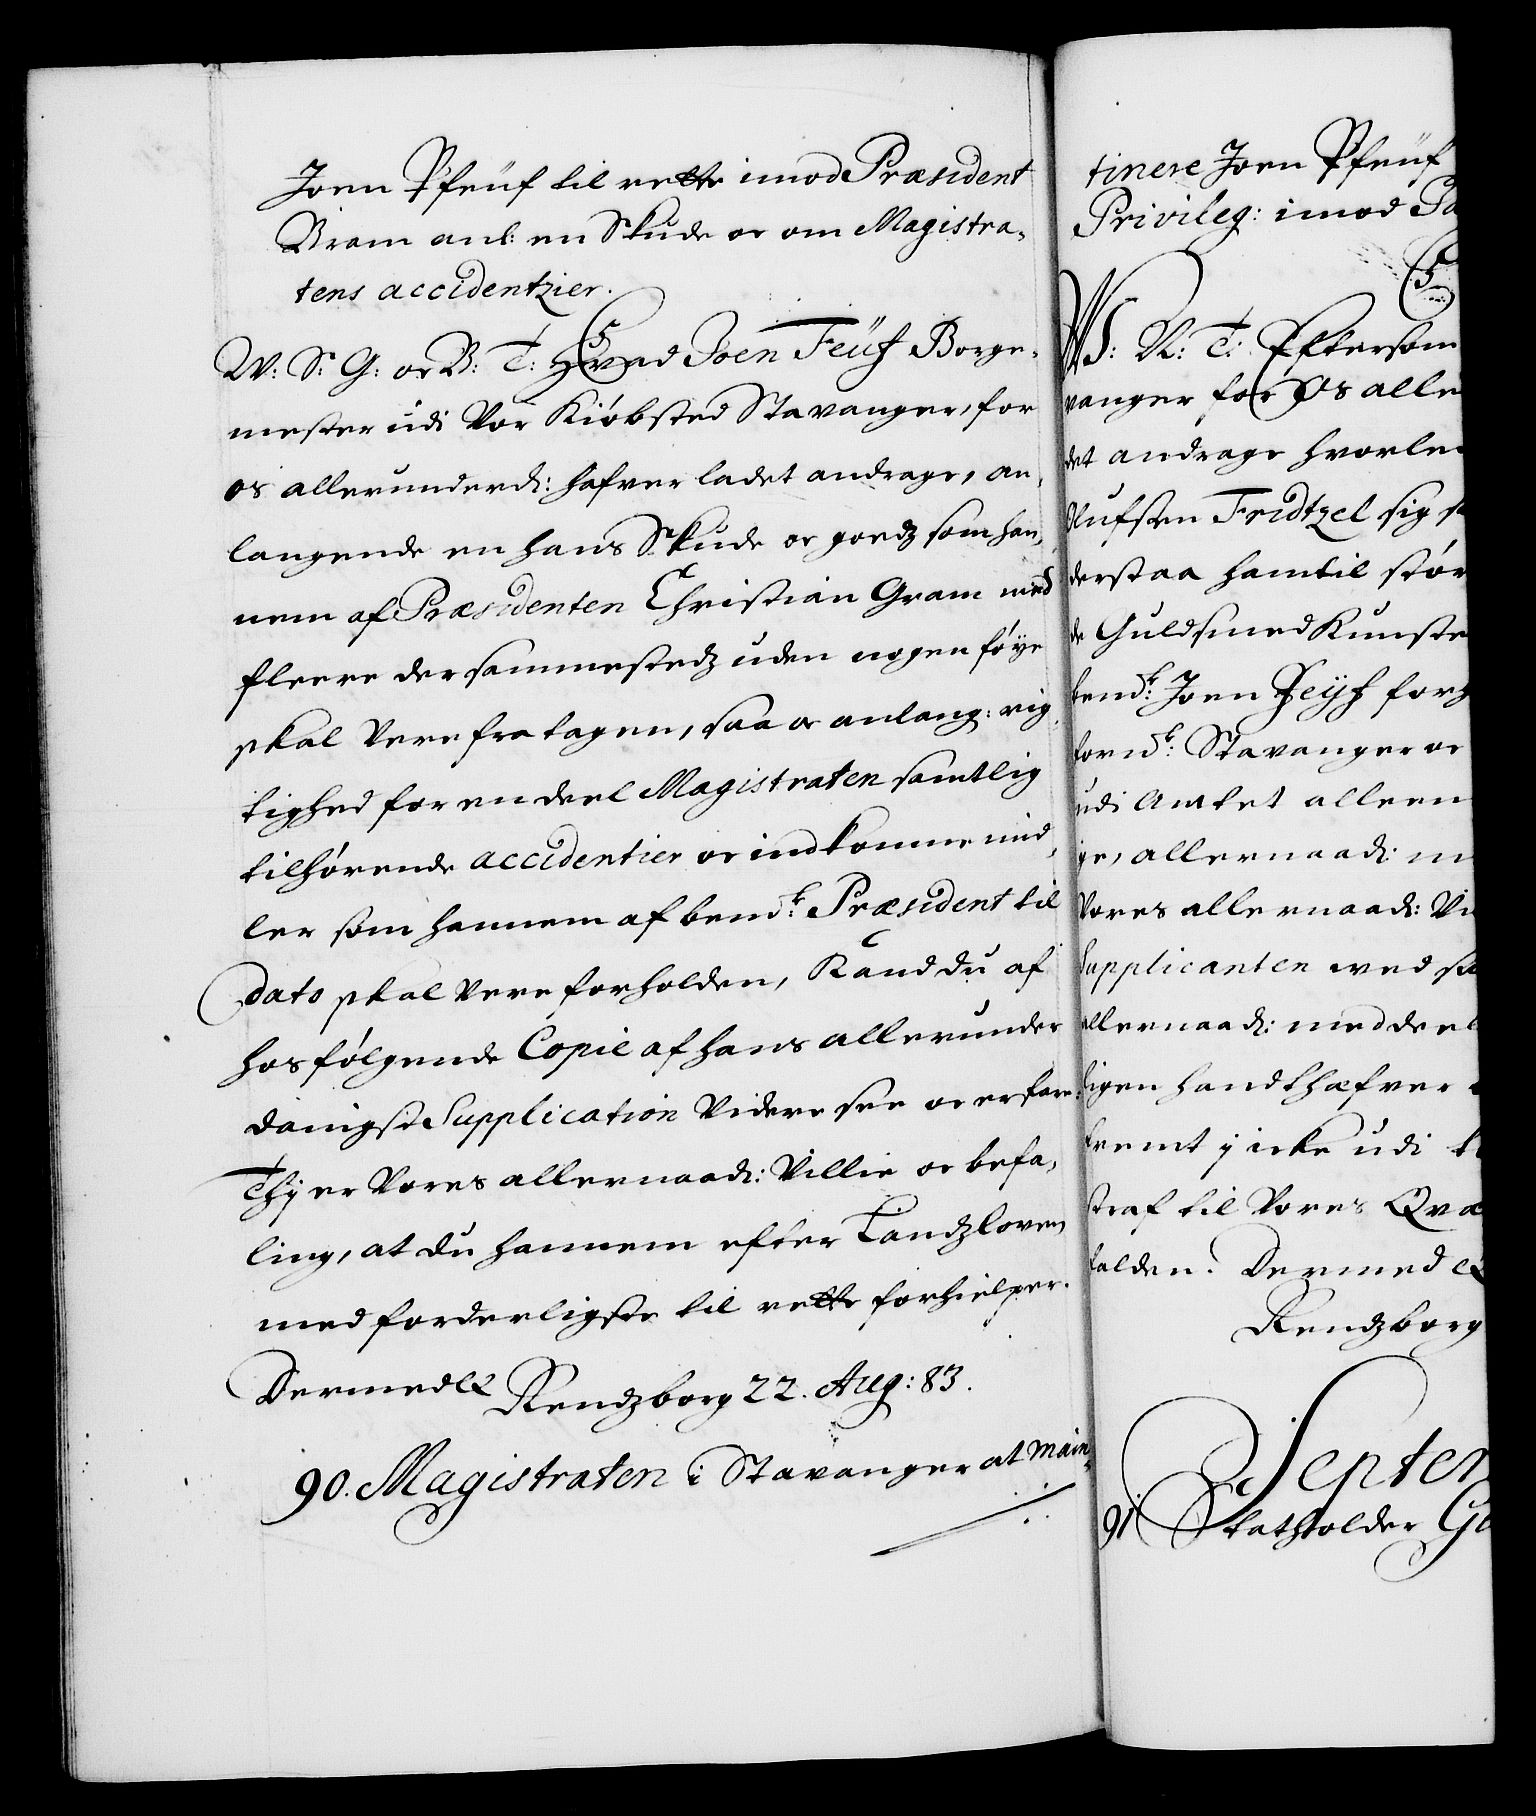 Joen Pfeüf til rette imod Præsident
Gram anl: en Skude oc om Magistra-
tens accidentzier.
C5
W: S: G: oc B: T: Hvad Joen Feüf Borge-
mester udi Vor Kiøbsted Stavanger, for
os allerunderd: hafver ladet andrage, an-
langende en hans Skude oc goedz som han-
nem af Præsidenten Christian Gram med
fleere dersammestedz uden nogen føye
skal Vere fra tagen, saa oc anlang: rig-
tighed for en deel Magistraten samtlig
tilhørende accidentier oc indkomme mid-
ler som hannem af bemt: Præsident til
dato skal Vere forholden, Kand du af
hosfølgende Copie af hans allerunder
danigste Supplication Videre see oc erfare:
Thj er Vores allernaad: Villie oc befa-
ling, at du hannem efter Landzloven
med forderligste til rette forhielper.
Dermed &
Rendzborg 22. Aug: 83.
90. Magistraten i Stavanger at main-
tinere Joen Pfeüf
Privileg: imod
C5
W: N: T: Eftersom
vanger for Os alle
det andrage hvorle
Olufsen Fridtzel sig
derstaa ham til stør
de Guldsmed Kunste
bemt: Joen Feijf forh
fornt: Stavanger oc
udi Amtet alleen
ge, allernaad: m
Vores allernaad: Vi
Supplicanten med
allernaad: meddeel
ligen handthæfver
fremt j icke udi
straf til Vores
falden. Dermed &
Rendzborg
Septem
91 Statholder